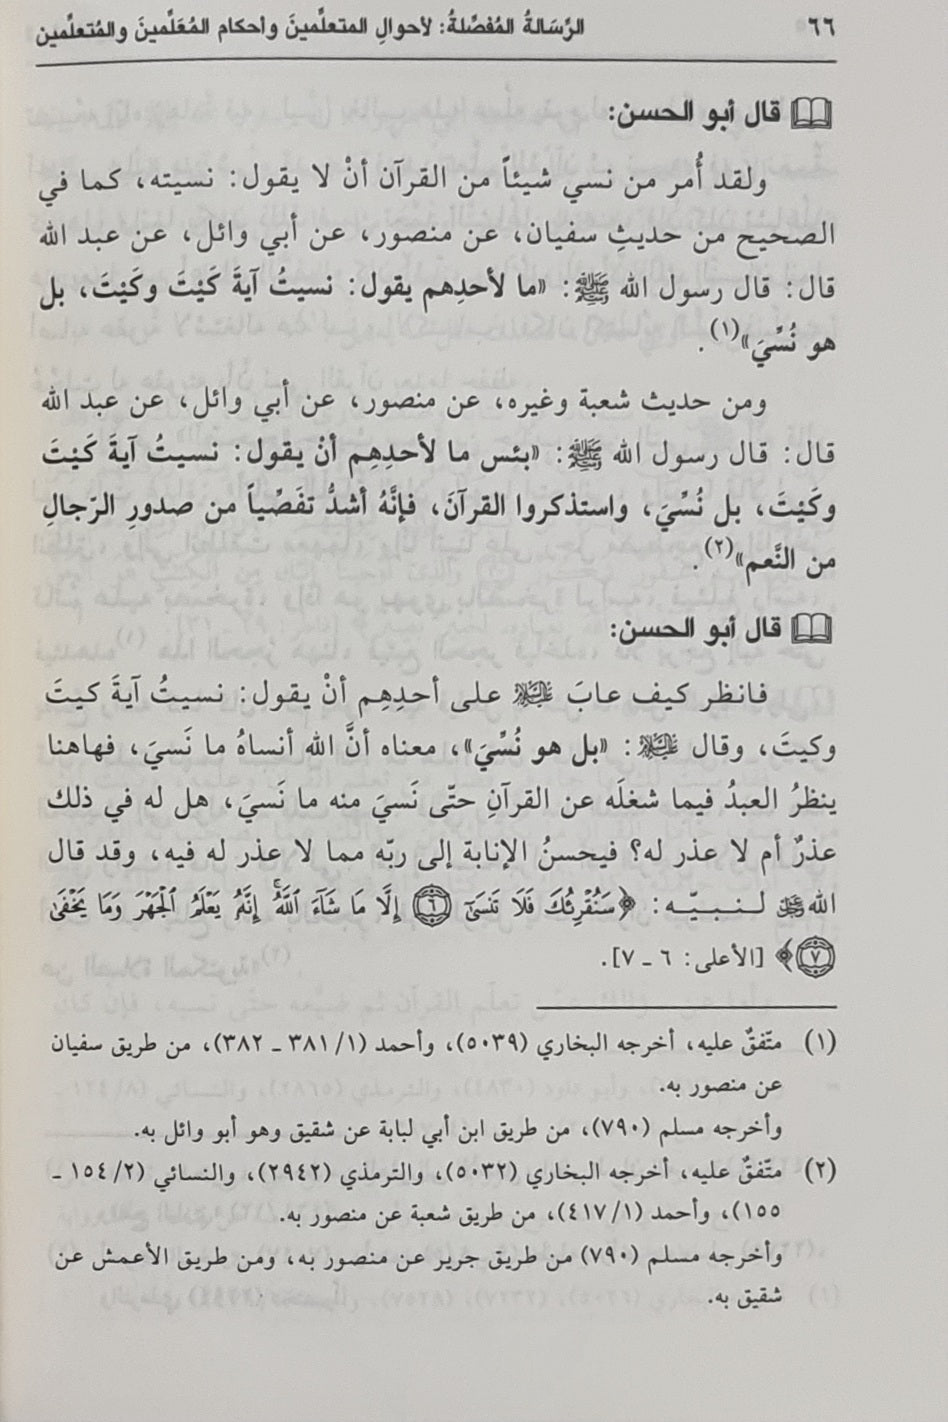 ٦٦ الرِّسَالةُ المُفصِّلةُ: لأحوالِ المتعلِّمينَ وأحكام المُعَلِّمينَ والمُتعلِّمين
قال أبو الحسن:
ولقد أُمر من نسي شيئاً من القرآن أنْ لا يقول: نسيته، كما في
الصحيح من حديثِ سفيان، عن منصور، عن أبي وائل، عن عبد الله
قال: قال رسول الله ﷺ: «ما لأحدِهم يقول: نسيتُ آيةَ كَيْتَ وكَيْتَ، بل
هو نُسِّيَ»(١).
ومن حديث شعبة وغيره، عن منصور، عن أبي وائل، عن عبد الله
قال: قال رسول الله ﷺ: «بئس ما لأحدِهِم أنْ يقول: نسيتُ آيةَ كَيْتَ
وكَيْتَ، بل نُسِّيَ، واستذكروا القرآنَ، فإنَّهُ أشدُّ تفَصِّياً من صدورِ الرّجالِ
من النَّعم»(٢).
قال أبو الحسن:
فانظر كيف عابَ ﷺ على أحدِهِم أنْ يقول: نسيتُ آيةَ كيتَ
وكيتَ، وقال ﷺ: «بل هو نُسِّيَ»، معناه أنَّ الله أنساهُ ما نَسيَ، فهاهنا
ينظرُ العبدُ فيما شغلَه عن القرآنِ حتّى نَسيَ منه ما نَسيَ، هل له في ذلك
عذرٌ أم لا عذر له؟ فيحسنُ الإنابة إلى ربّه مما لا عذر له فيه، وقد قال
الله ﷻ لـنـبـيّـه: ﴿سَنُقْرِئُكَ فَلَا تَنسَىٰٓ ٦ إِلَّا مَا شَآءَ ٱللَّهُۚ إِنَّهُۥ يَعْلَمُ ٱلْجَهْرَ وَمَا يَخْفَىٰ
٧﴾ [الأعلى: ٦ ـ ٧].
(١) متّفقٌ عليه، أخرجه البخاري (٥٠٣٩)، وأحمد (١/ ٣٨١ ـ ٣٨٢)، من طريق سفيان
عن منصور به.
وأخرجه مسلم (٧٩٠)، من طريق ابن أبي لبابة عن شقيق وهو أبو وائل به.
(٢) متّفقٌ عليه، أخرجه البخاري (٥٠٣٢)، والترمذي (٢٩٤٢)، والنسائي (٢/ ١٥٤ ـ
١٥٥)، وأحمد (١/ ٤١٧)، من طريق شعبة عن منصور به.
وأخرجه مسلم (٧٩٠) من طريق جرير عن منصور به، ومن طريق الأعمش عن
شقيق به.